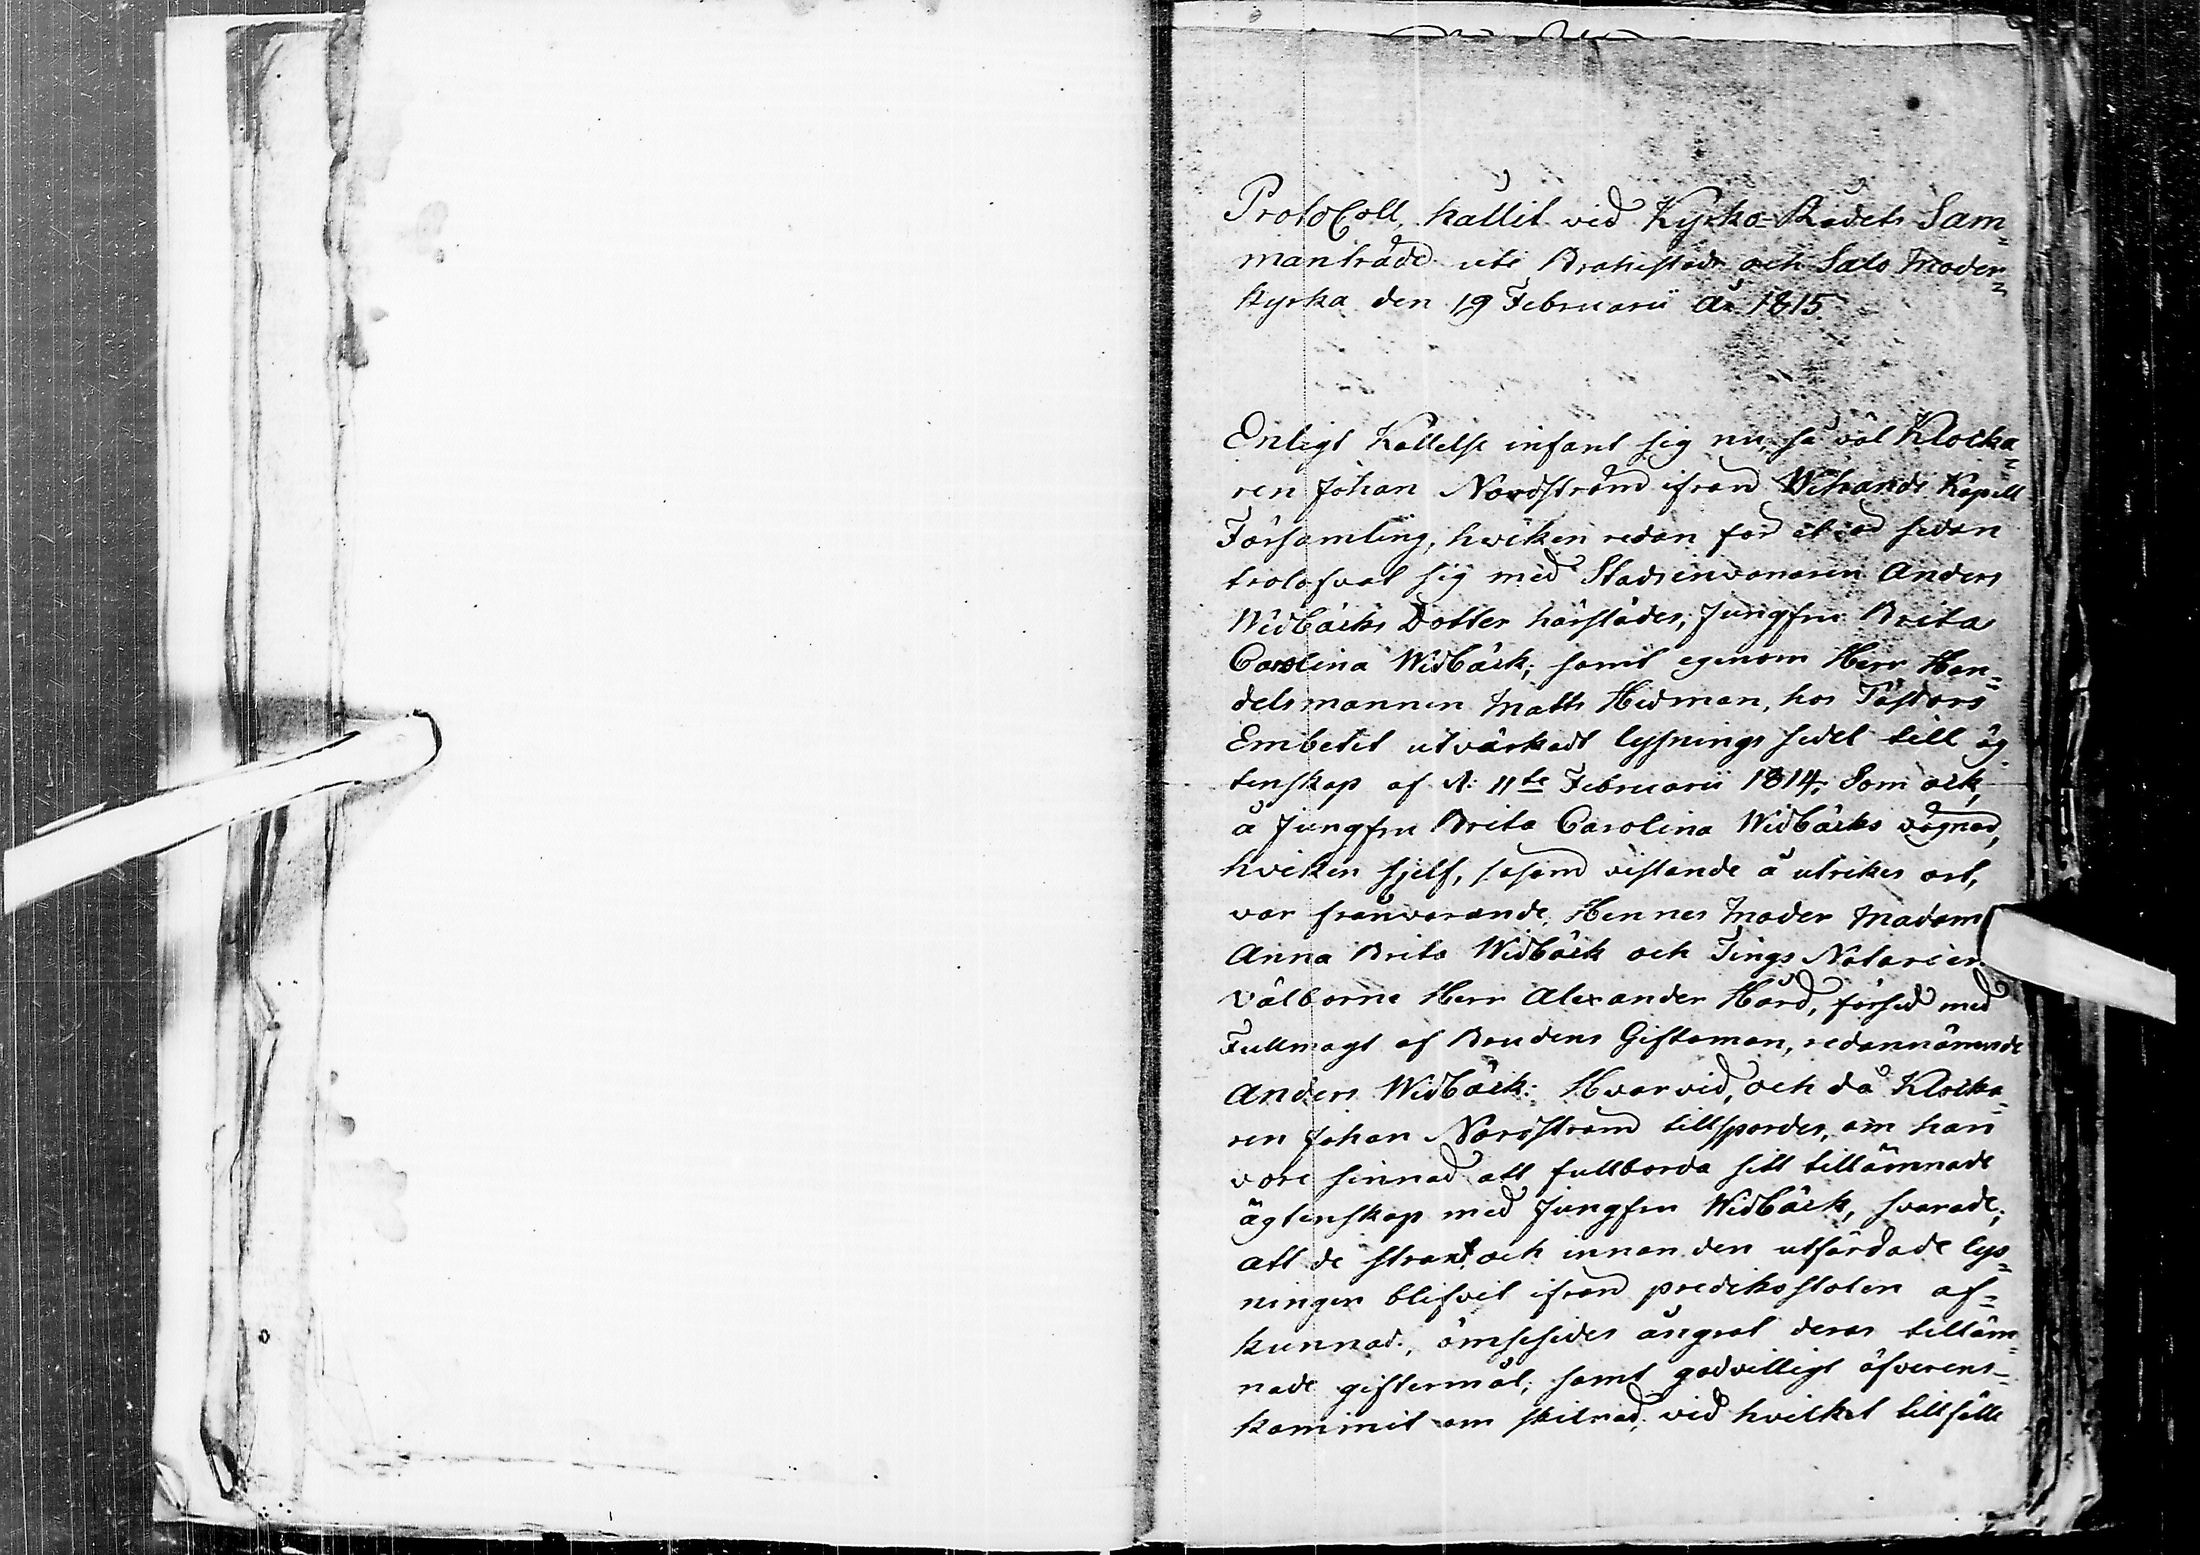 ProtoColl, hållit vid Kyrko-Rådets Sam=
manträde uti Brahestads och Salo Moder=
kyrka den 19 Februarii År 1815.
Enligt Kallelse infant sig nu, så väl Klocka=
ren Johan Nordström ifrån Wihandi Kapell
Församling, hvilken redan for et år sedan
trolofvat sig med Stadsinvonaren Anders
Widbäcks Dotter härstädes, Jungfru Brita
Carolina Widbäck, samt egenom Herr Han=
delsmannen Matts Hedman, hos Pastors
Embetet utvärkadt lysnings sedel till äg
tenskap af d: 11te Februarii 1814; Som ock,
å Jungfru Brita Carolina Widbäcks vägnar,
hvilken sjelf, såsom vistande å utrikes ort,
var frånvarande, Hennes Moder Madam
Anna Brita Widbäck och Tings Notarien
Välborne Herr Alexander Hård, försed med
Fullmagt af Brudens Giftoman, redannämnde
Anders Widbäck: Hvarvid, och då Klocka=
ren Johan Nordström tillspordes, om han
vore sinnad att fullborda sitt tillämnade
ägtenskap med Jungfru Widbäck, svarade;
att de strax och innan den utfärdade lys=
ningen blifvit ifrån predikostolen af=
kunnad, ömsesides ångrat deras tilläm=
nade giftermål, samt godvilligt öfverens=
kommit om skilnad, vid hvilket tillfälle